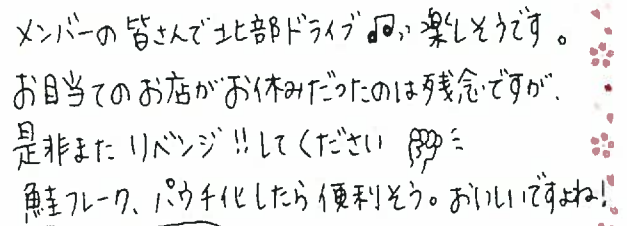 メンバーの皆さんで北部ドライブ♫,, 楽しそうです。
お目当てのお店がお休みだったのは残念ですが、
是非またリベンジ!!してください
鮭フレーク、パウチ化したら便利そう。おいしいですよね!